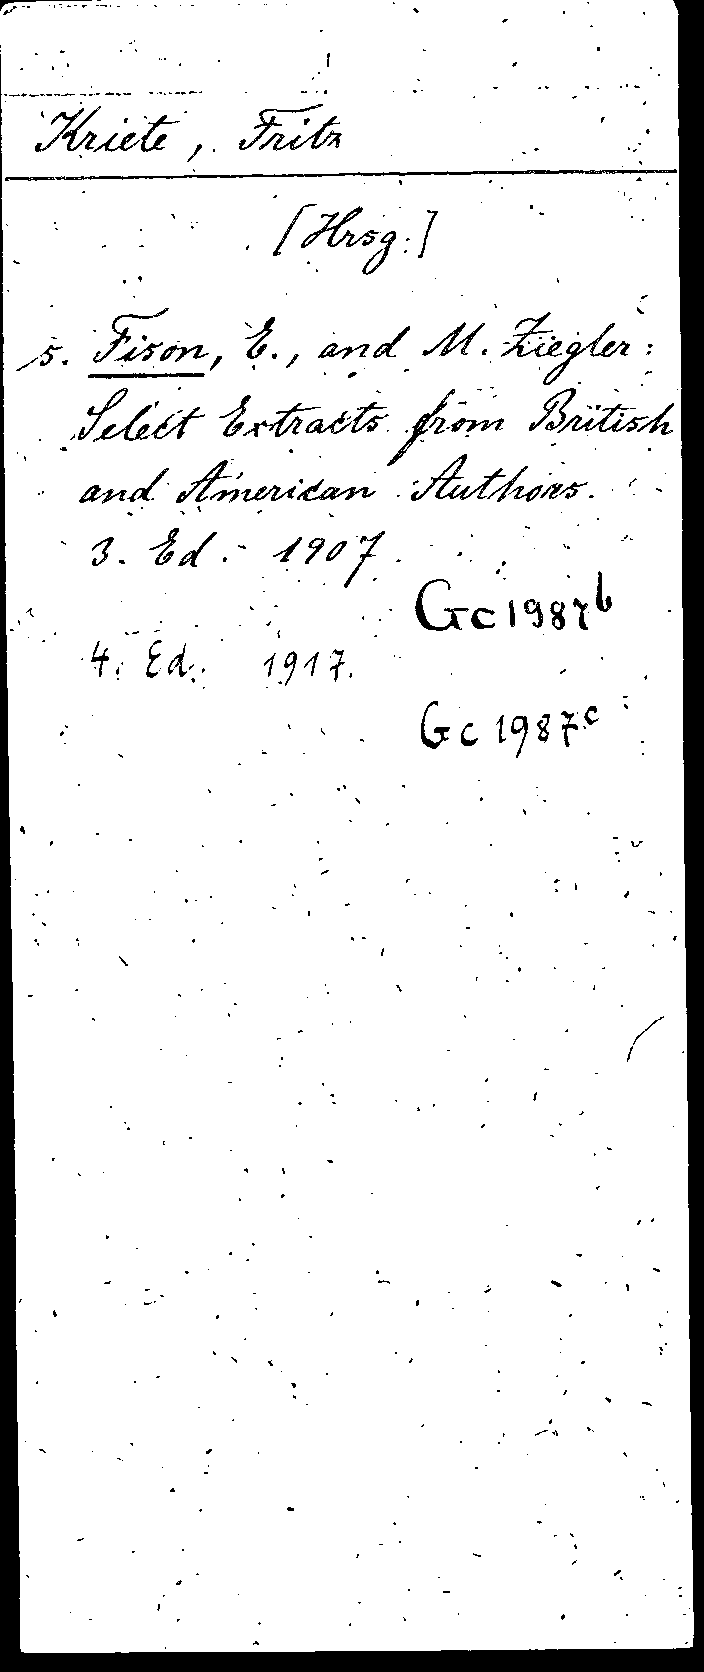 Kriete, Fritz
[Hrsg.]
s. Fison, E., and M. Ziegler:
Select Extracts from British
and American Authors.
3. Ed. 1907.
Gc 1987b
4. Ed. 1917.
Gc 1987c